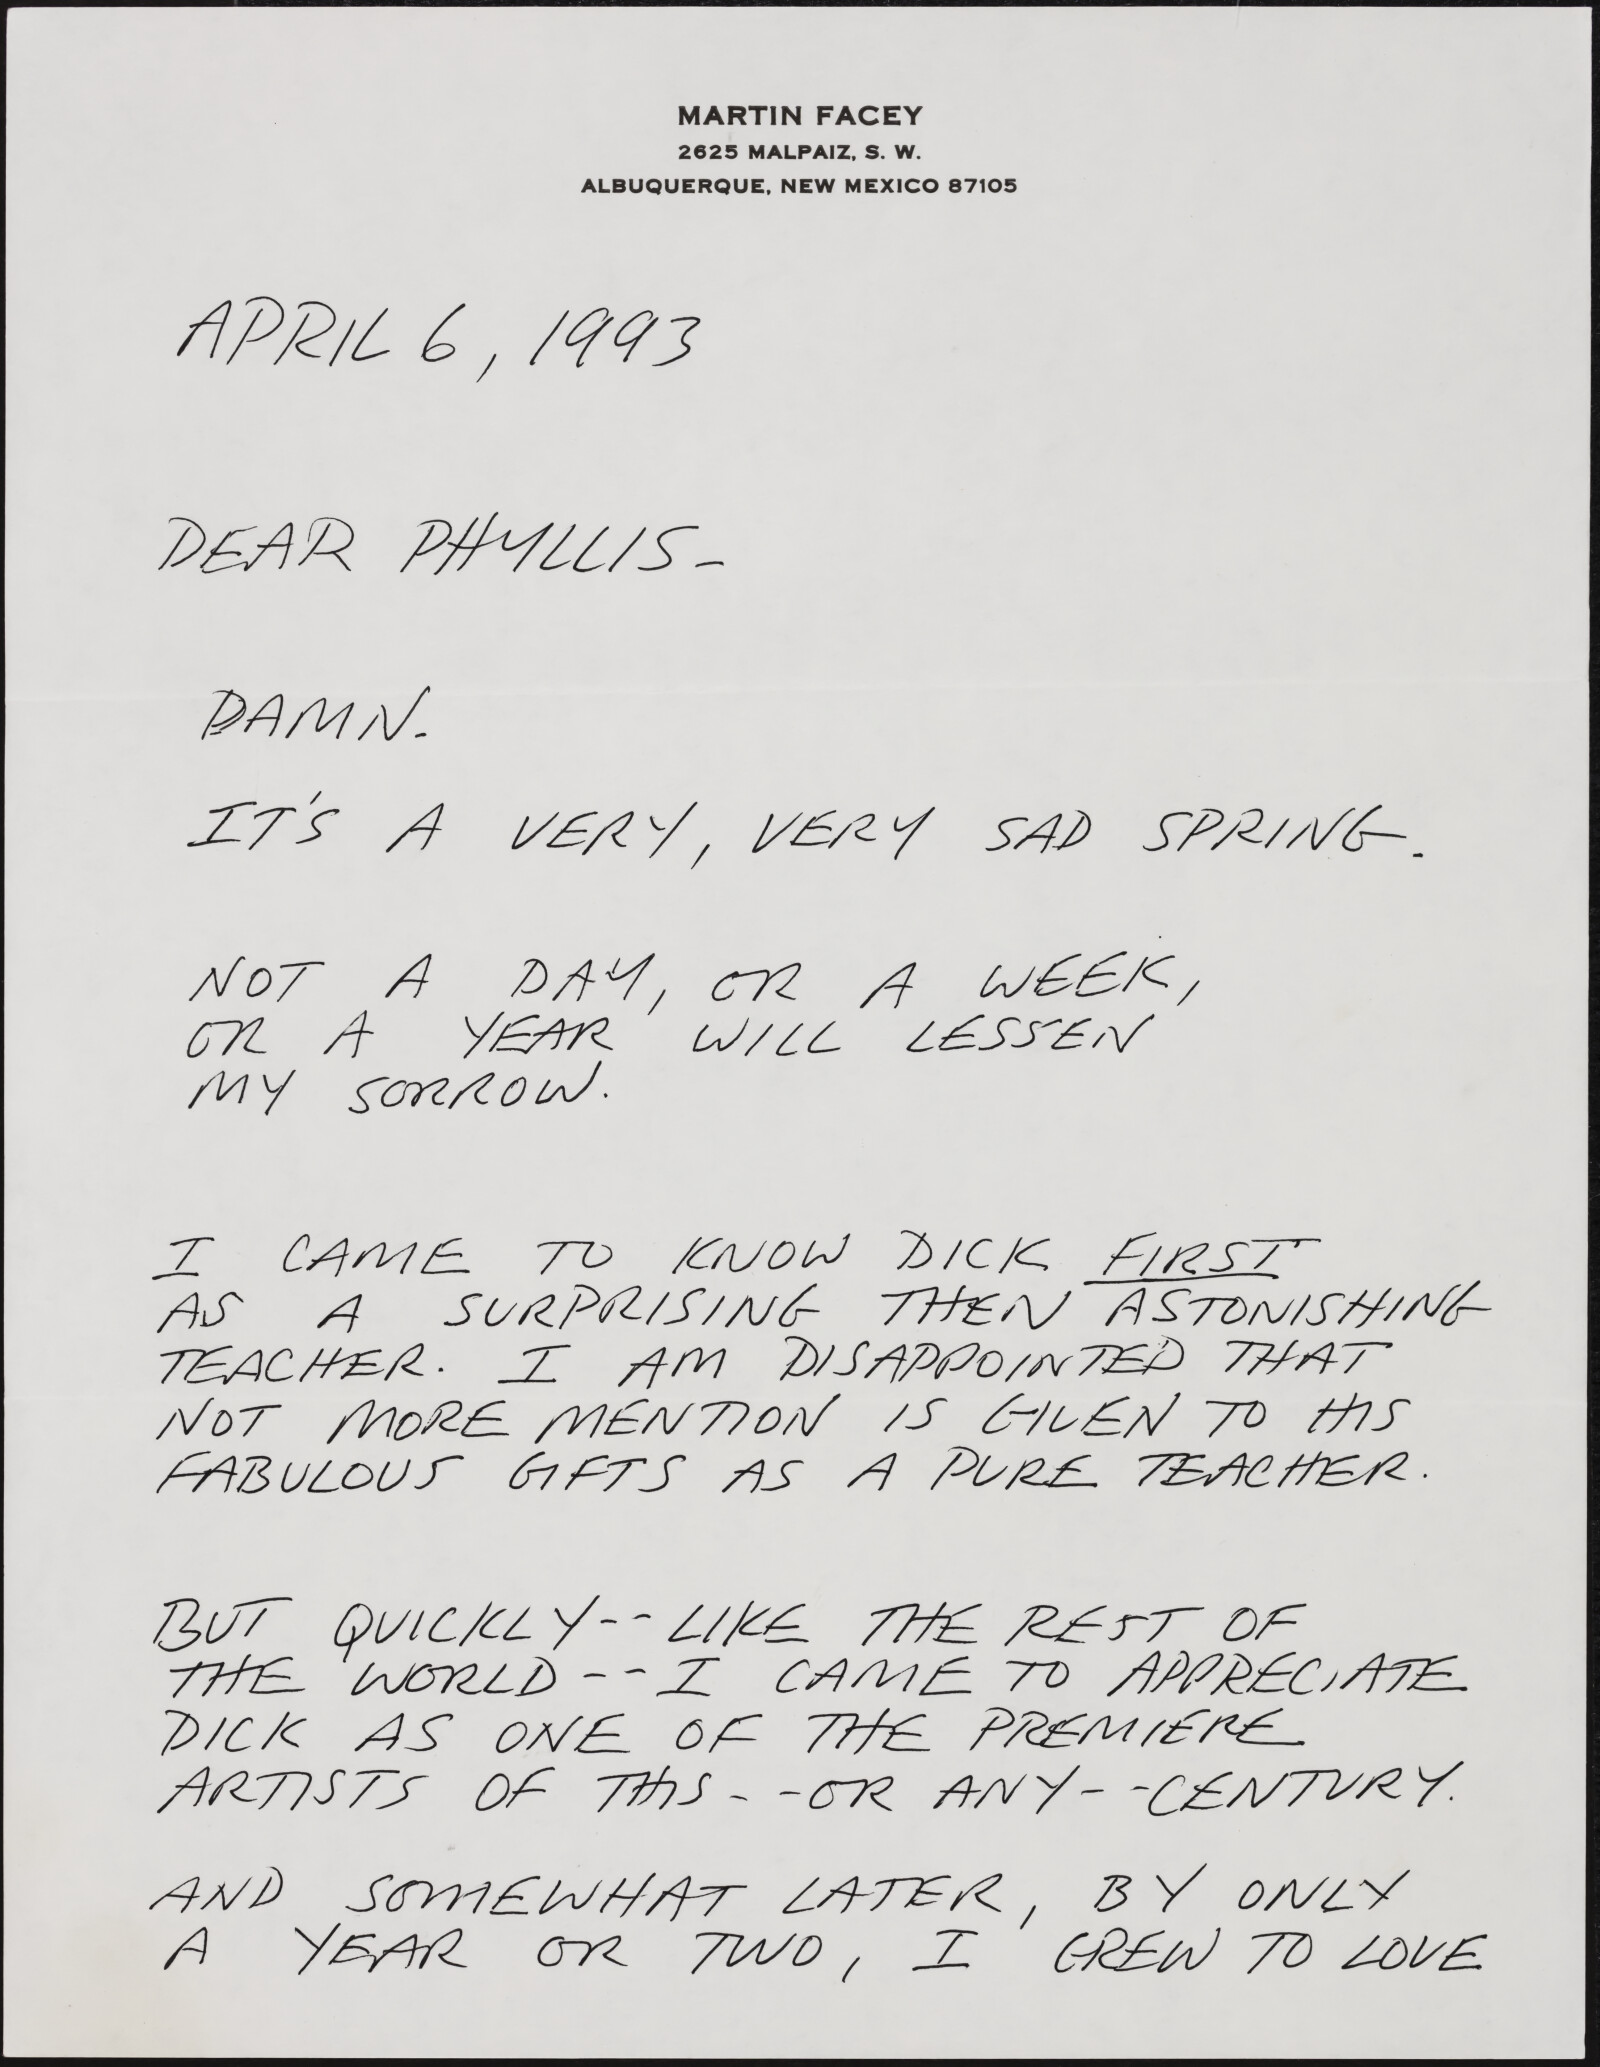 MARTIN FACEY
2625 MALPAIZ, S. W.
ALBUQUERQUE, NEW MEXICO 87105
APRIL 6, 1993
DEAR PHYLLIS-
DAMN.
IT'S A VERY, VERY SAD SPRING.
NOT A DAY, OR A WEEK,
OR A YEAR WILL LESSEN
MY SORROW.
I CAME TO KNOW DICK FIRST
AS A SURPRISING THEN ASTONISHING
TEACHER. I AM DISAPPOINTED THAT
NOT MORE MENTION IS GIVEN TO HIS
FABULOUS GIFTS AS A PURE TEACHER.
BUT QUICKLY--LIKE THE REST OF
THE WORLD--I CAME TO APPRECIATE
DICK AS ONE OF THE PREMIERE
ARTISTS OF THIS--OR ANY--CENTURY.
AND SOMEWHAT LATER, BY ONLY
A YEAR OR TWO, I GREW TO LOVE